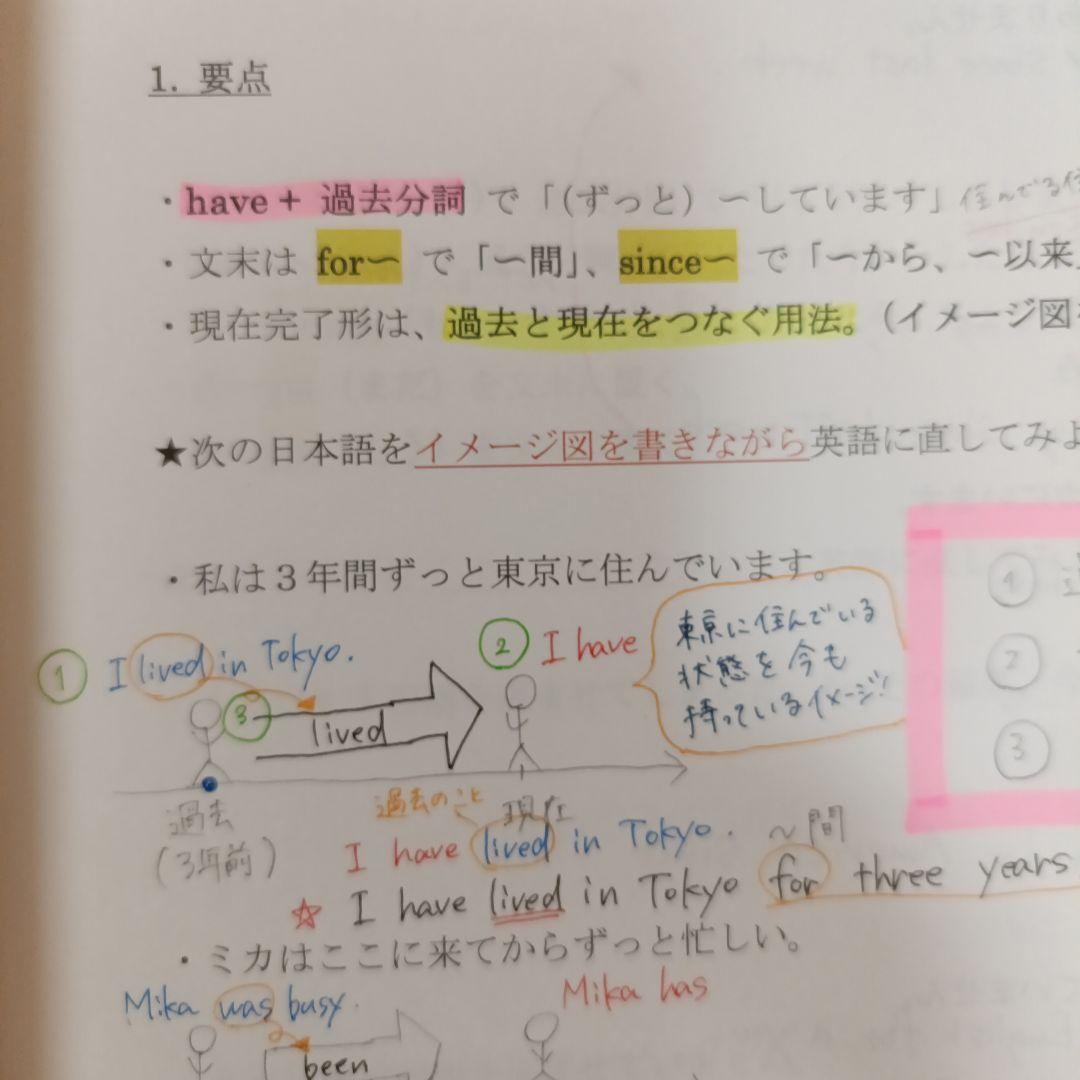 1. 要点
・have + 過去分詞 で「(ずっと) ～しています」 住んでる
・文末は for～ で「～間」、since～ で「～から、～以来」
・現在完了形は、過去と現在をつなぐ用法。(イメージ図
★次の日本語をイメージ図を書きながら英語に直してみ
・私は3年間ずっと東京に住んでいます。
① I lived in Tokyo.
② I have
東京に住んでいる
状態を今も
持っているイメージ!
①
②
③
③ lived
過去
(3年前)
過去のこと
現在
I have lived in Tokyo. ~間
☆ I have lived in Tokyo for three years
・ミカはここに来てからずっと忙しい。
Mika was busy.
Mika has
been